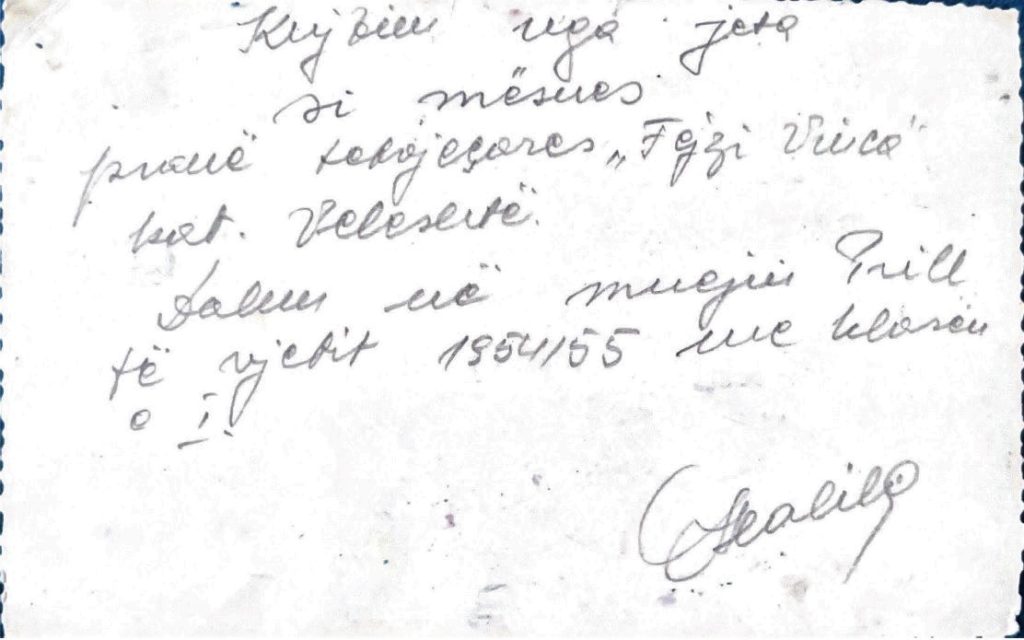 Kujtim nga jeta
si mësues
pranë tetvjeçares „Fejzi Vruca"
kat. Veleshtë.
Dalun në muejin Prill
të vjetit 1954/55 me klasën
e I.